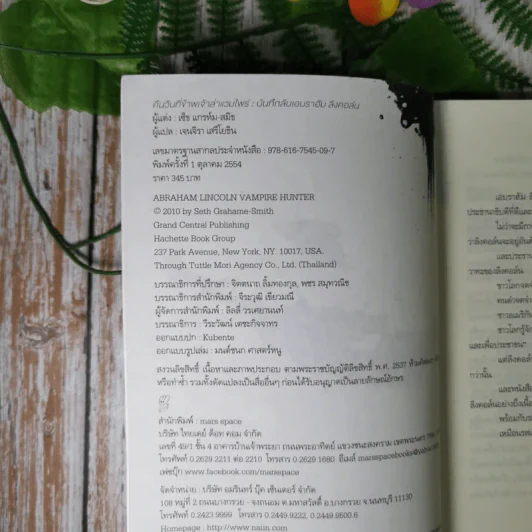 คืนวันที่ข้าพเจ้าล่าแวมไพร์ : บันทึกลับเอบราฮัม ลิงคอล์น
ผู้แต่ง : เซ็ธ แกรห์ม-สมิธ
ผู้แปล : เจนจิรา เสรีโยธิน
เลขมาตรฐานสากลประจำหนังสือ : 978-616-7545-09-7
พิมพ์ครั้งที่ 1 ตุลาคม 2554
ราคา 345 บาท
ABRAHAM LINCOLN VAMPIRE HUNTER
© 2010 by Seth Grahame-Smith
Grand Central Publishing
Hachette Book Group
237 Park Avenue, New York, NY. 10017, USA.
Through Tuttle Mori Agency Co., Ltd. (Thailand)
บรรณาธิการที่ปรึกษา : จิตตนาถ ลิ้มทองกุล, พชร สมุทวณิช
บรรณาธิการสำนักพิมพ์ : จีระวุฒิ เขียวมณี
ผู้จัดการสำนักพิมพ์ : ลิลลี่ วรเศยานนท์
บรรณาธิการ : วีระวัฒน์ เตชะกิจจาทร
ออกแบบปก : Kubente
ออกแบบรูปเล่ม : มนต์ชนก ศาสตร์หนู
สงวนลิขสิทธิ์ เนื้อหาและภาพประกอบ ตามพระราชบัญญัติลิขสิทธิ์ พ.ศ. 2537
หรือทำซ้ำ รวมทั้งดัดแปลงเป็นสื่ออื่นๆ ก่อนได้รับอนุญาตเป็นลายลักษณ์อักษร
สำนักพิมพ์ : mars space
บริษัท ไทยเดย์ ด็อท คอม จำกัด
เลขที่ 49/1 ชั้น 4 อาคารบ้านเจ้าพระยา ถนนพระอาทิตย์ แขวงชนะสงคราม เขตพระนคร
โทรศัพท์ 0.2629 2211 ต่อ 2210 โทรสาร 0.2629 1680 อีเมล์
เฟซบุ๊ก www.facebook.com/marsspace
จัดจำหน่าย : บริษัท อมรินทร์ บุ๊ค เซ็นเตอร์ จำกัด
108 หมู่ที่ 2 ถนนบางกรวย - จงถนอม ต.มหาสวัสดิ์ อ.บางกรวย จ.นนทบุรี 11130
โทรศัพท์ 0.2423.9999 โทรสาร 0.2449.9222, 0.2449.9500.6
Homepage : http://www.naiin.com
เอบราฮัม
ไม่ว่าจะมีกา
และประธาน
ชาวโลกจดจ
ชาวโลกรู้จัก
และเพื่อประชาชน"
แต่ลิงคอล์
กว่านั้น
และหนังสือ